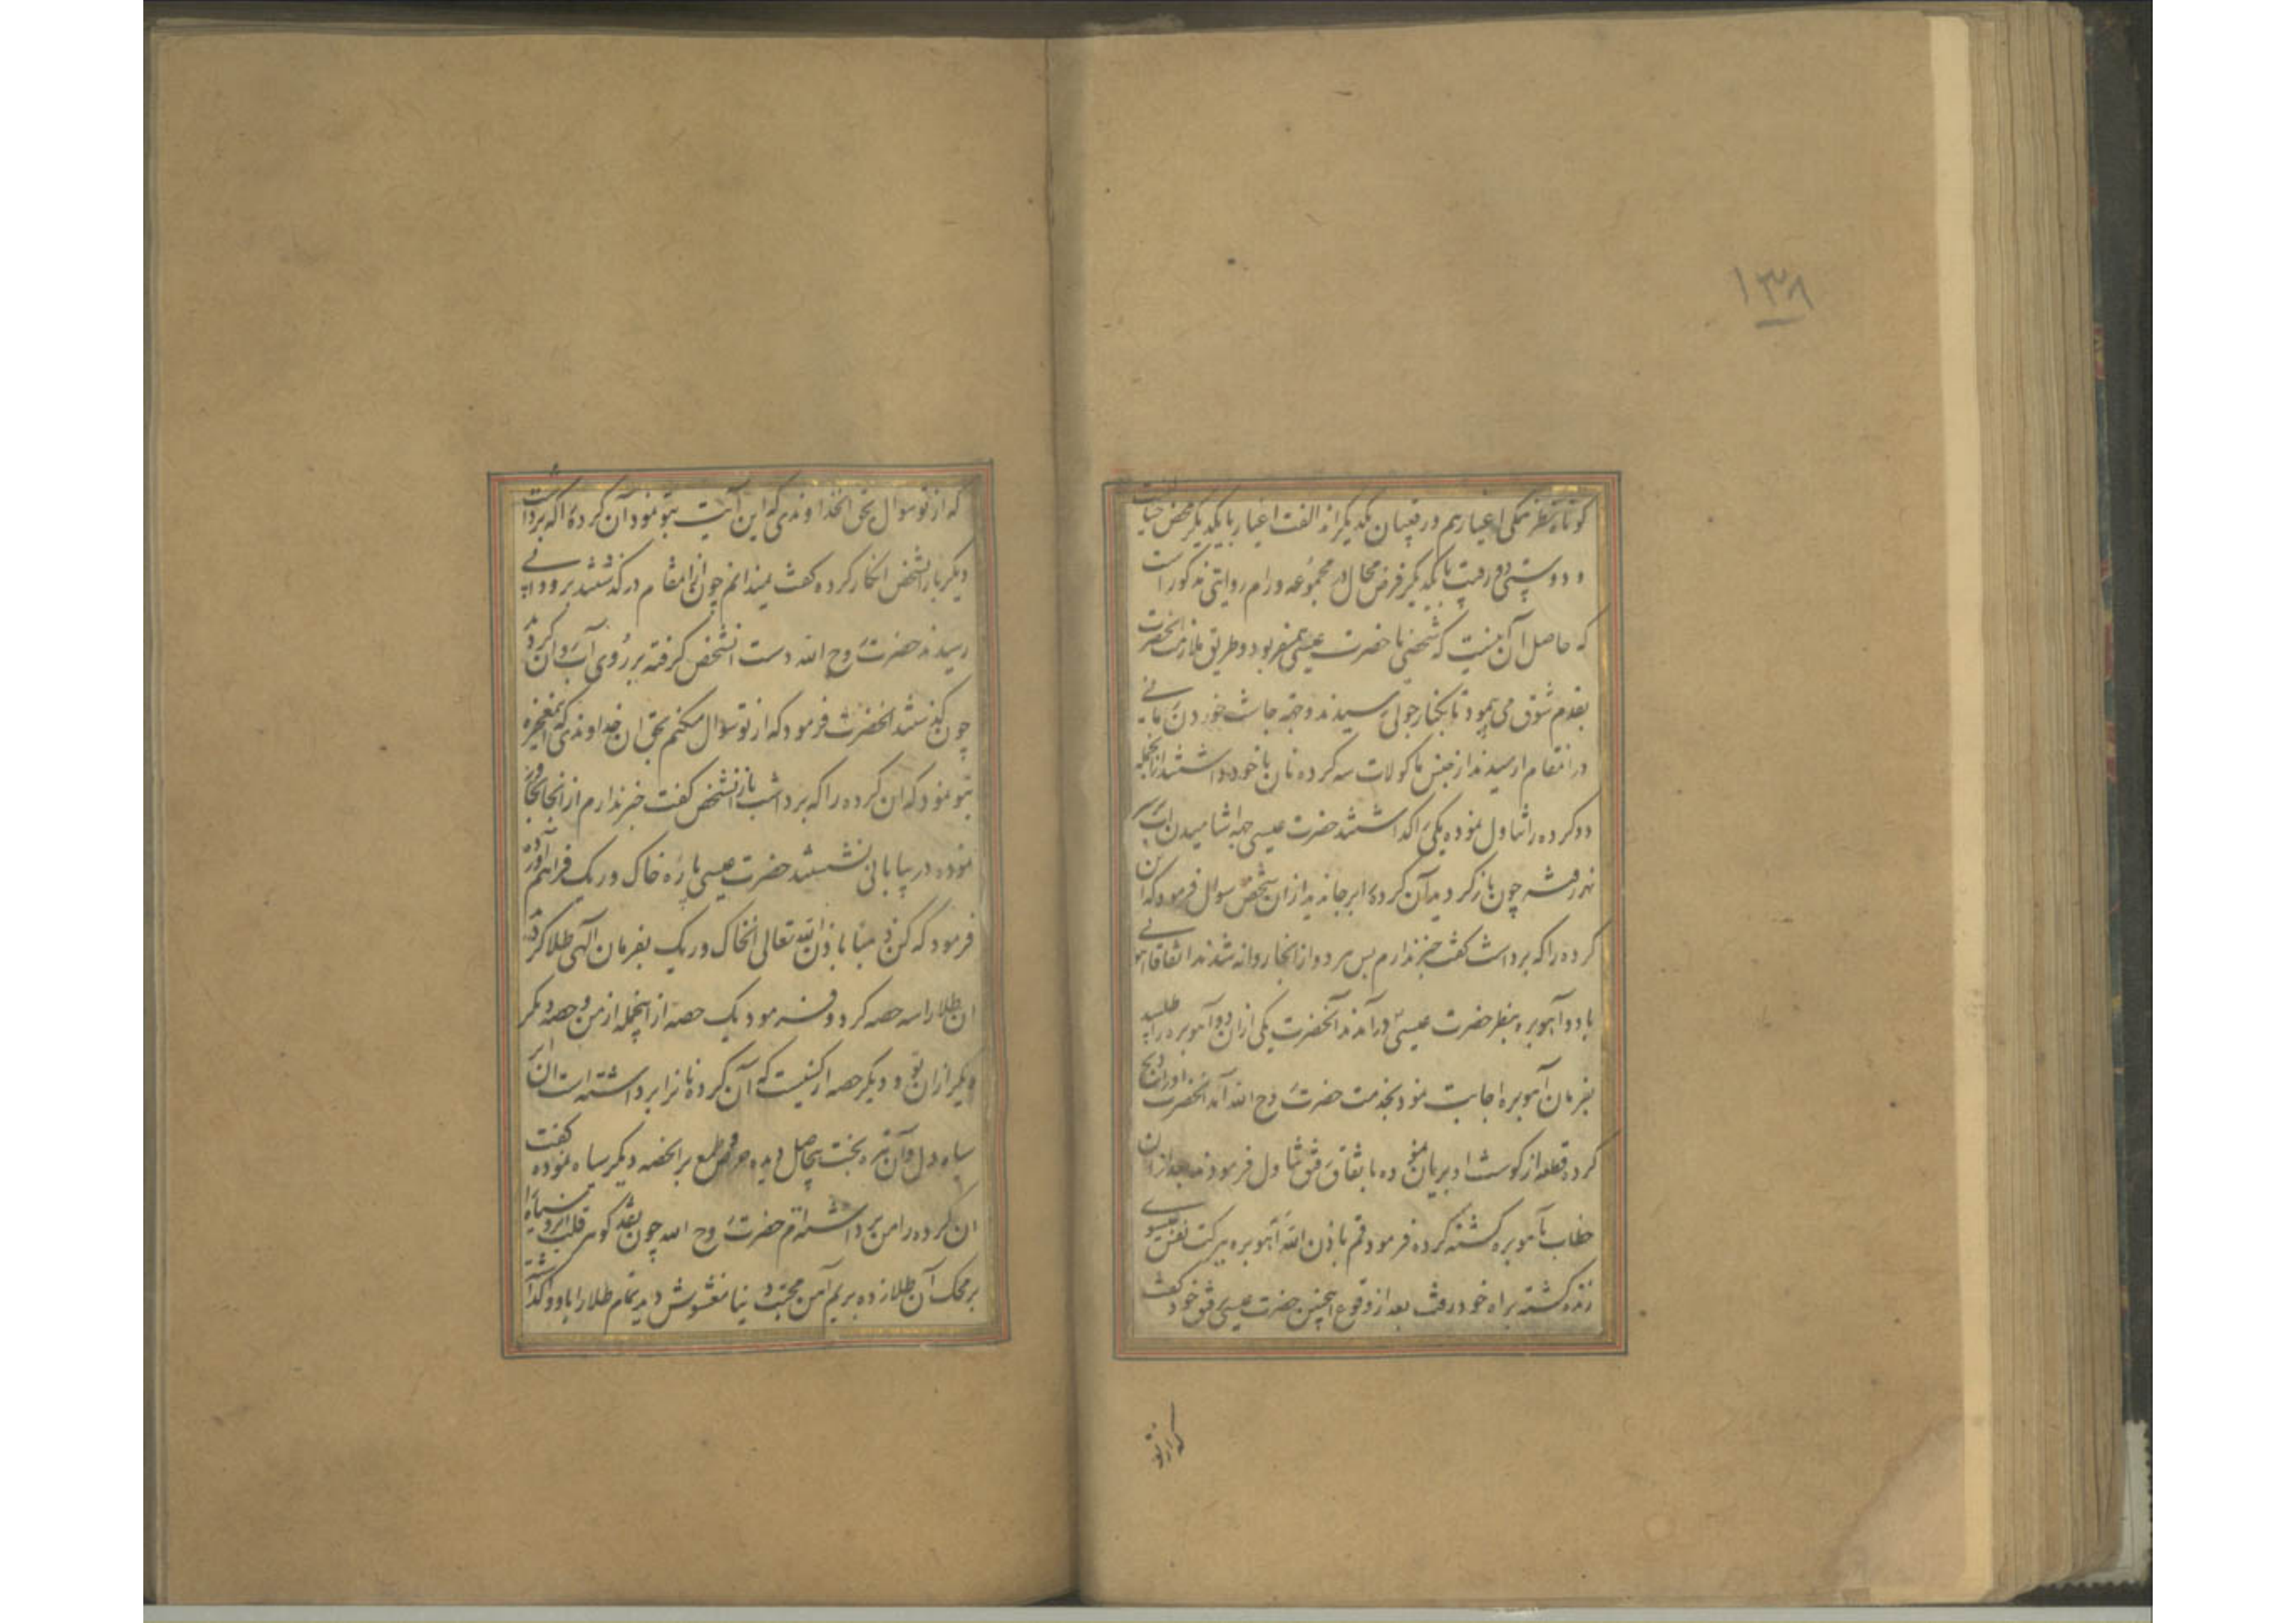 ۱۳۸
کوتاه نظر یکی اغیار هم و رقیبان یکدیگراند الفت اغیار با یکدیگر محض خیالست
و دوستی دو رقیب با یکدیگر فرض محال در مجموعه ورام روایتی مذکور است
که حاصل آن اینست که شخصی با حضرت عیسی همسفر بود و طریق ملازمت انحضرت
بقدم شوق می پیمود تا بکنار جوئی رسیدند و جهة چاشت خوردن زمانی
در انمقام ارمیدند از جنس ماکولات سه کرده نان با خود داشتند از انجمله
دو کرده را تناول نموده یکی را کذاشتند حضرت عیسی جهة اشامیدن اب بر سر
نهر رفته چون باز کردید آن کرده را بر جا ندید از ان شخص سوال فرمود که ان
کرده را که برداشت کفت خبر ندارم پس هر دو از انجا روانه شدند اتفاقا اهوئی
با دو آهو بره بنظر حضرت عیسی درآمدند آنحضرت یکی از ان دو آهو بره را طلبید
بفرمان آهو بره اجابت نمود بخدمت حضرت روح الله آمد انحضرت او را ذبح
کرده قطعه از کوشت او بریان نموده باتفاق رفیق تناول فرمودند بعد از ان
خطاب بآهو بره کشته کرده فرمود قم باذن الله آهو بره ببرکت نفس عیسوی
زنده کشته براه خود رفت بعد از وقوع اینچنین حضرت عیسی رفیق خود کفت
که از تو
که از تو سوال بحق انخداوندی که این آیت بتو نمود آن کرده را که برداشت
دیکر بار انشخص انکار کرده کفت نمیدانم چون از انمقام درکذشتند برودخانه
رسیدند حضرت روح الله دست انشخص کرفته بر روی آب روان کردید
چون کذشتند انحضرت فرمود که از تو سوال میکنم بحق ان خداوندی که این معجزه
بتو نمود که ان کرده را که برداشت باز انشخص کفت خبر ندارم از انجا تجاوز
نموده در بیابانی نشستند حضرت عیسی پاره خاک و ریک فراهم آورده
فرمود که کن ذهبا باذن الله تعالی انخاک و ریک بفرمان الهی طلا کردید
ان طلا را سه حصه کرد و فرمود یک حصه از اینجمله از من و حصه دیکر
دیکر از ان تو و دیکر حصه از کسیست که آن کرده نان را برداشته است ان
سیاه دل و آن تیره بخت بیحاصل دیده حرص و طمع بر انحصه دیکر سیاه نموده کفت
ان کرده را من برداشته ام حضرت روح الله چون نقد کوهر قلب ابرو سیاه را
بر محک آن طلا زده بریم آمن محبت دنیا مغشوش دید تمام طلا را باو واکذاشت